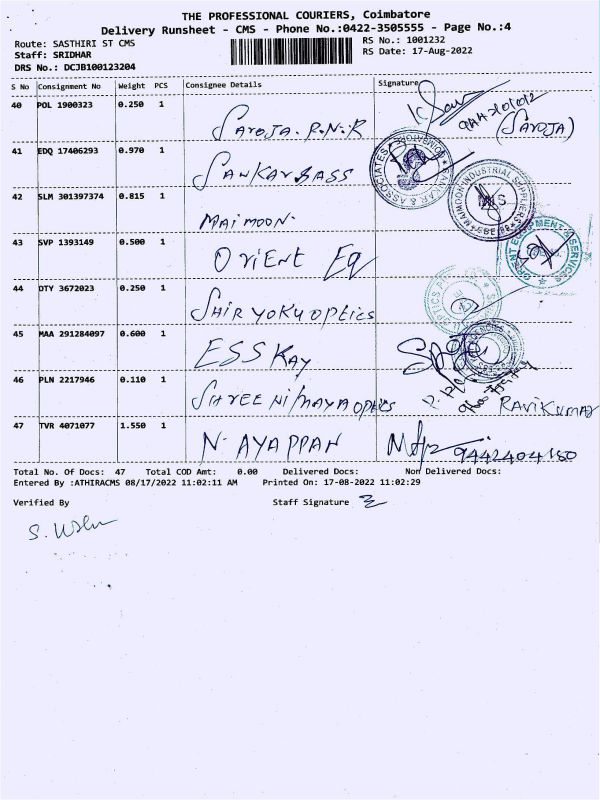 THE PROFESSIONAL COURIERS, Coimbatore
Delivery Runsheet - CMS - Phone No.:0422-3505555 - Page No.:4
Route: SASTHIRI ST CMS
RS No.: 1001232
Staff: SRIDHAR
RS Date: 17-Aug-2022
DRS No.: DCJB100123204
S No Consignment No Weight PCS Consignee Details Signature
40 POL 1900323 0.250 1 Saroja.R.N.R (SAROJA)
41 EDQ 17406293 0.970 1 SANKAR & ASSS
42 SLM 301397374 0.815 1 MAIMOON.
43 SVP 1393149 0.500 1 ORIENT Eq
44 DTY 3672023 0.250 1 SHIRYOKU OPTICS
45 MAA 291284097 0.600 1 ESSKAY
46 PLN 2217946 0.110 1 SHREE NIMAYA OPTICS RAVIKUMAR
47 TVR 4071077 1.550 1 N. AYAPPAN 9442404180
Total No. Of Docs: 47 Total COD Amt: 0.00 Delivered Docs: Non Delivered Docs:
Entered By :ATHIRACMS 08/17/2022 11:02:11 AM Printed On: 17-08-2022 11:02:29
Verified By Staff Signature